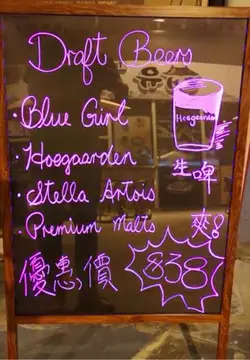 Draft Beers
· Blue Girl
Hoegaarden
· Hoegaarden
生啤
· Stella Artois
· Premium Malts
爽!
優惠價
$38